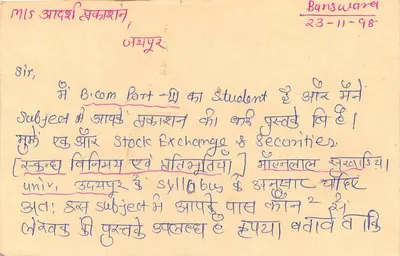 M/S आदर्श प्रकाशन,
जयपुर
Banswara
23-11-98
Sir,
मैं B.com Part-II का Student हूँ और मैंने
Subject में आपके प्रकाशन की कई पुस्तकें ली है।
मुझे एक और Stock Exchange & Securities
[स्कन्ध विनिमय एवं प्रतिभूतियाँ] मोहनलाल सुखाड़िया
univ. उदयपुर के syllabus के अनुसार चाहिए
अतः इस subject में आपके पास कौन 2 से
लेखक की पुस्तकें उपलब्ध है कृपया बतावे ताकि